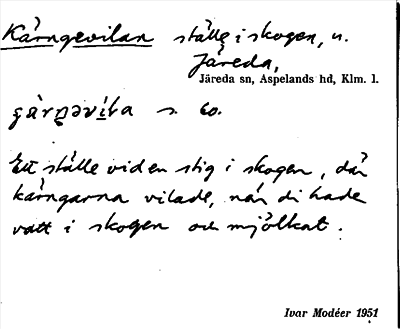 Kärngevilan ställe i skogen, u.
Järeda,
Järeda sn, Aspelands hd, Klm. l.
s. 60.
Ett ställe vid en stig i skogen, där
kärngarna vilade, när di hade
vatt i skogen och mjölkat.
Ivar Modéer 1951